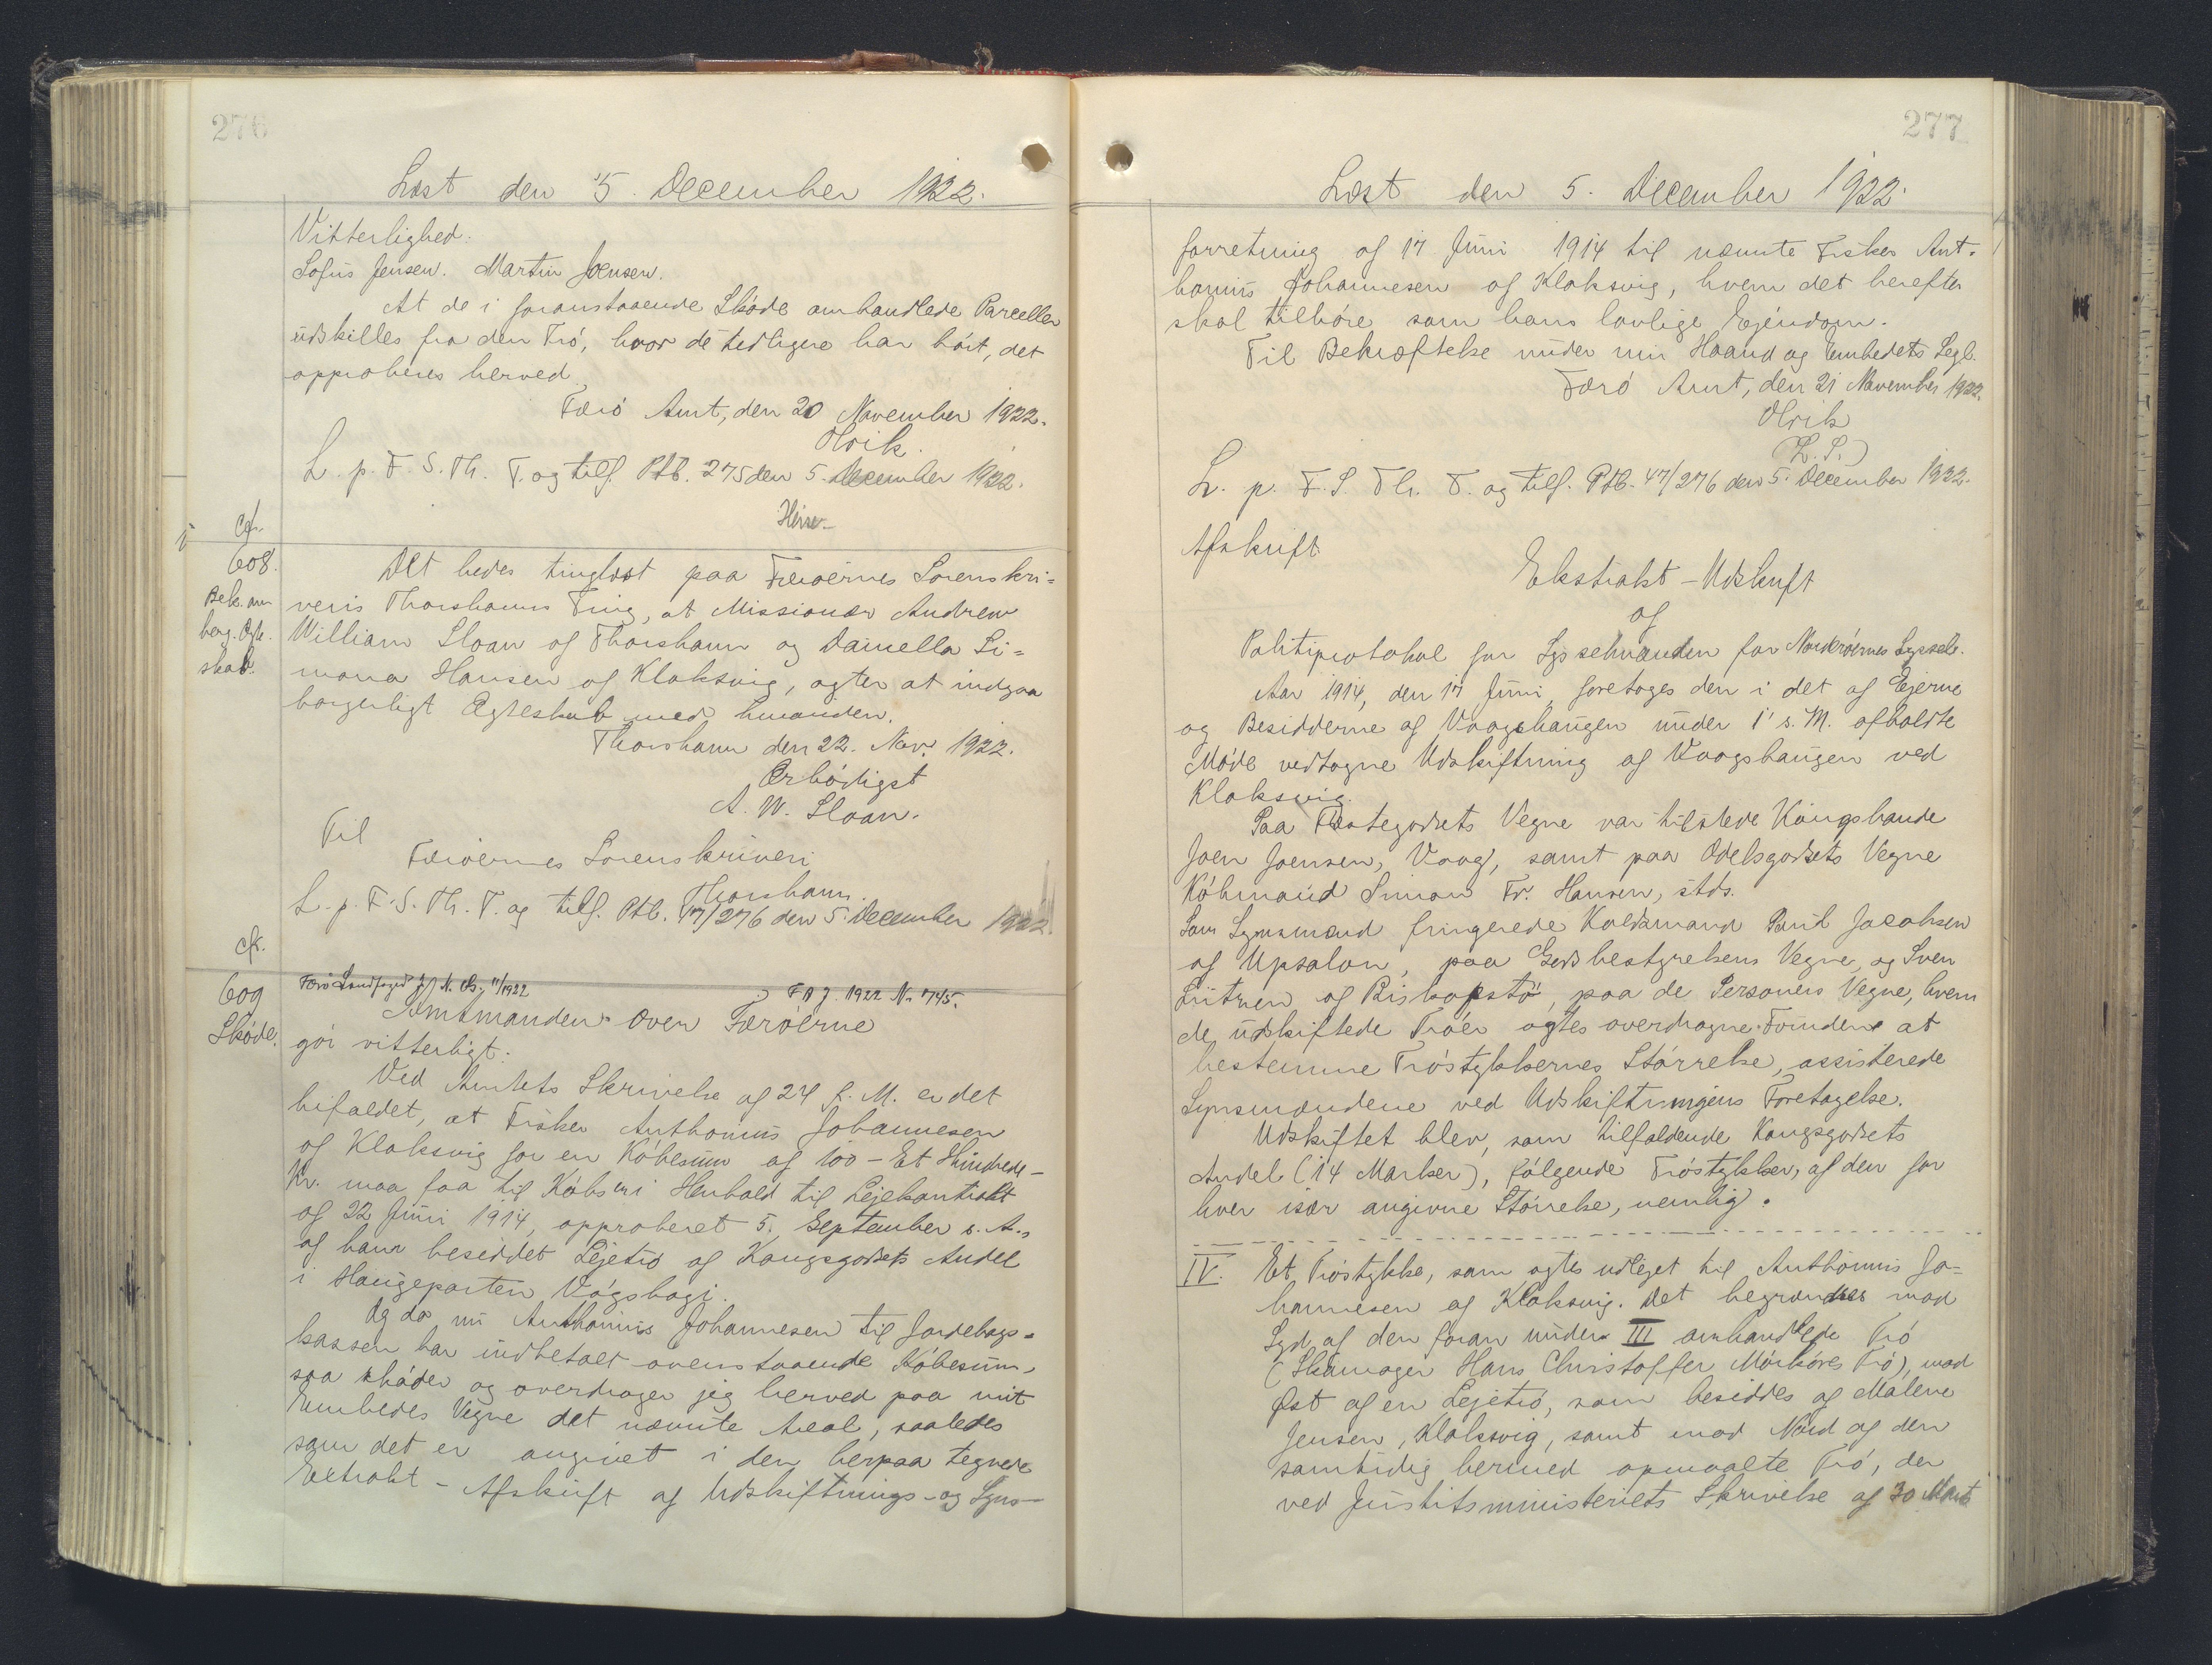 276
Læst den 5. December 1922.
Vitterlighed.
Sofus Jensen. Martin Joensen.
At de i foranstaaende Skøde omhandlede Parceller
udskilles fra den Trö, hvor de tidligere har hört, det
approberes herved
Færö Amt, den 20 November 1922.
Olrik.
L. p. F. S. Th. T. og tilf. Ptb. 275 den 5. December 1922.
cfr.
608.
Bek. om
borg. Ægte.
skab.
Det bedes tinglæst paa Færöernes Sorenskri=
veris Thorshavns Ting, at Missionær Andrew
William Sloan af Thorshavn og Daniella Si=
mona Hansen af Klaksvig, agter at indgaa
borgerligt Ægteskab med hinanden.
Thorshavn den 22. Nov. 1922.
Ærbödigst
A. W. Sloan.
Til
Færöernes Sorenskriveri
Thorshavn.
L. p. F. S. Th. T. og tilf. Ptb. 17/276 den 5. December 1922
cfr.
609
Sköde.
FA J. 1922 N. 7745.
Amtmanden over Færöerne
gör vitterligt:
Ved Amtets Skrivelse af 24 f. M. er det
bifaldet, at Fisker Anthonius Johannesen
af Klaksvig for en Købesum af 100 - Et Hundrede -
Kr. maa faa til Købs i Henhold til Lejekontrakt
af 22 Juni 1914, approberet 5. September s. A.,
af ham besiddet Lejetrö af Kongsgodsets Andel
i Haugeparten Vágshagi.
Og da nu Anthonius Johannesen til Jordebogs-
kassen har indbetalt ovenstaaende Købesum,
saa skøder og overdrager jeg herved paa mit
Embedes Vegne det nævnte Areal, saaledes
som det er angivet i den herpaa tegnede
Extrakt - Afskrift af Udskiftnings- og Syns-
277
Læst den 5. December 1922.
forretning af 17 Juni 1914 til nævnte Fisker Ant.
honius Johannesen af Klaksvig, hvem det herefter
skal tilhöre som hans lovlige Ejendom.
Til Bekræftelse under min Haand og Embedets Segl.
Færö Amt, den 21 November 1922.
Olrik
(L. S.)
L. p. F. S. Th. T. og tilf. Ptb. 47/276 den 5. December 1922.
Afskrift
Ekstrakt - Udskrift
af
Politiprotokol for Sysselmanden for Norderöernes Syssel.
Aar 1914, den 17 Juni, foretoges den i det af Ejerne
og Besidderne af Vaagshaugen under 1' s. M. afholdte
Møde vedtagne Udskiftning af Vaagshaugen ved
Klaksvig.
Paa Fæstegodsets Vegne var tilstede Kongsbonde
Joen Joensen, Vaag, samt paa Odelsgodsets Vegne
Köbmand Simon Fr. Hansen, stds.
Som Synsmænd fungerede Kaldsmand Poul Jacobsen
af Upsalon, paa Godsbestyrelsens Vegne, og Sven
af Biskopstö, paa de Personers Vegne, hvem
de udskiftede Tröer agtes overdragne. at
bestemme Tröstykkernes Störrelse, assisterede
Synsmændene ved Udskiftningens Foretagelse.
Udskiftet blev, som tilfaldende Kongsgodsets
Andel (14 Marker), fölgende Tröstykker, af den for
hver især angivne Störrelse, nemlig:
IV. Et Tröstykke, som agtes udleget til Anthonius Jo=
hannesen af Klaksvig. Det begrændses mod
Syd af den foran under III omhandlede Trö
(Skomager Hans Christoffer Mörköres Trö), mod
Øst af en Lejetrö, som besiddes af Malene
Jensen, Klaksvig, samt mod Nord af den
samtidig hermed opmaalte Trö, der
ved Justitsministeriets Skrivelse af 30 Marts